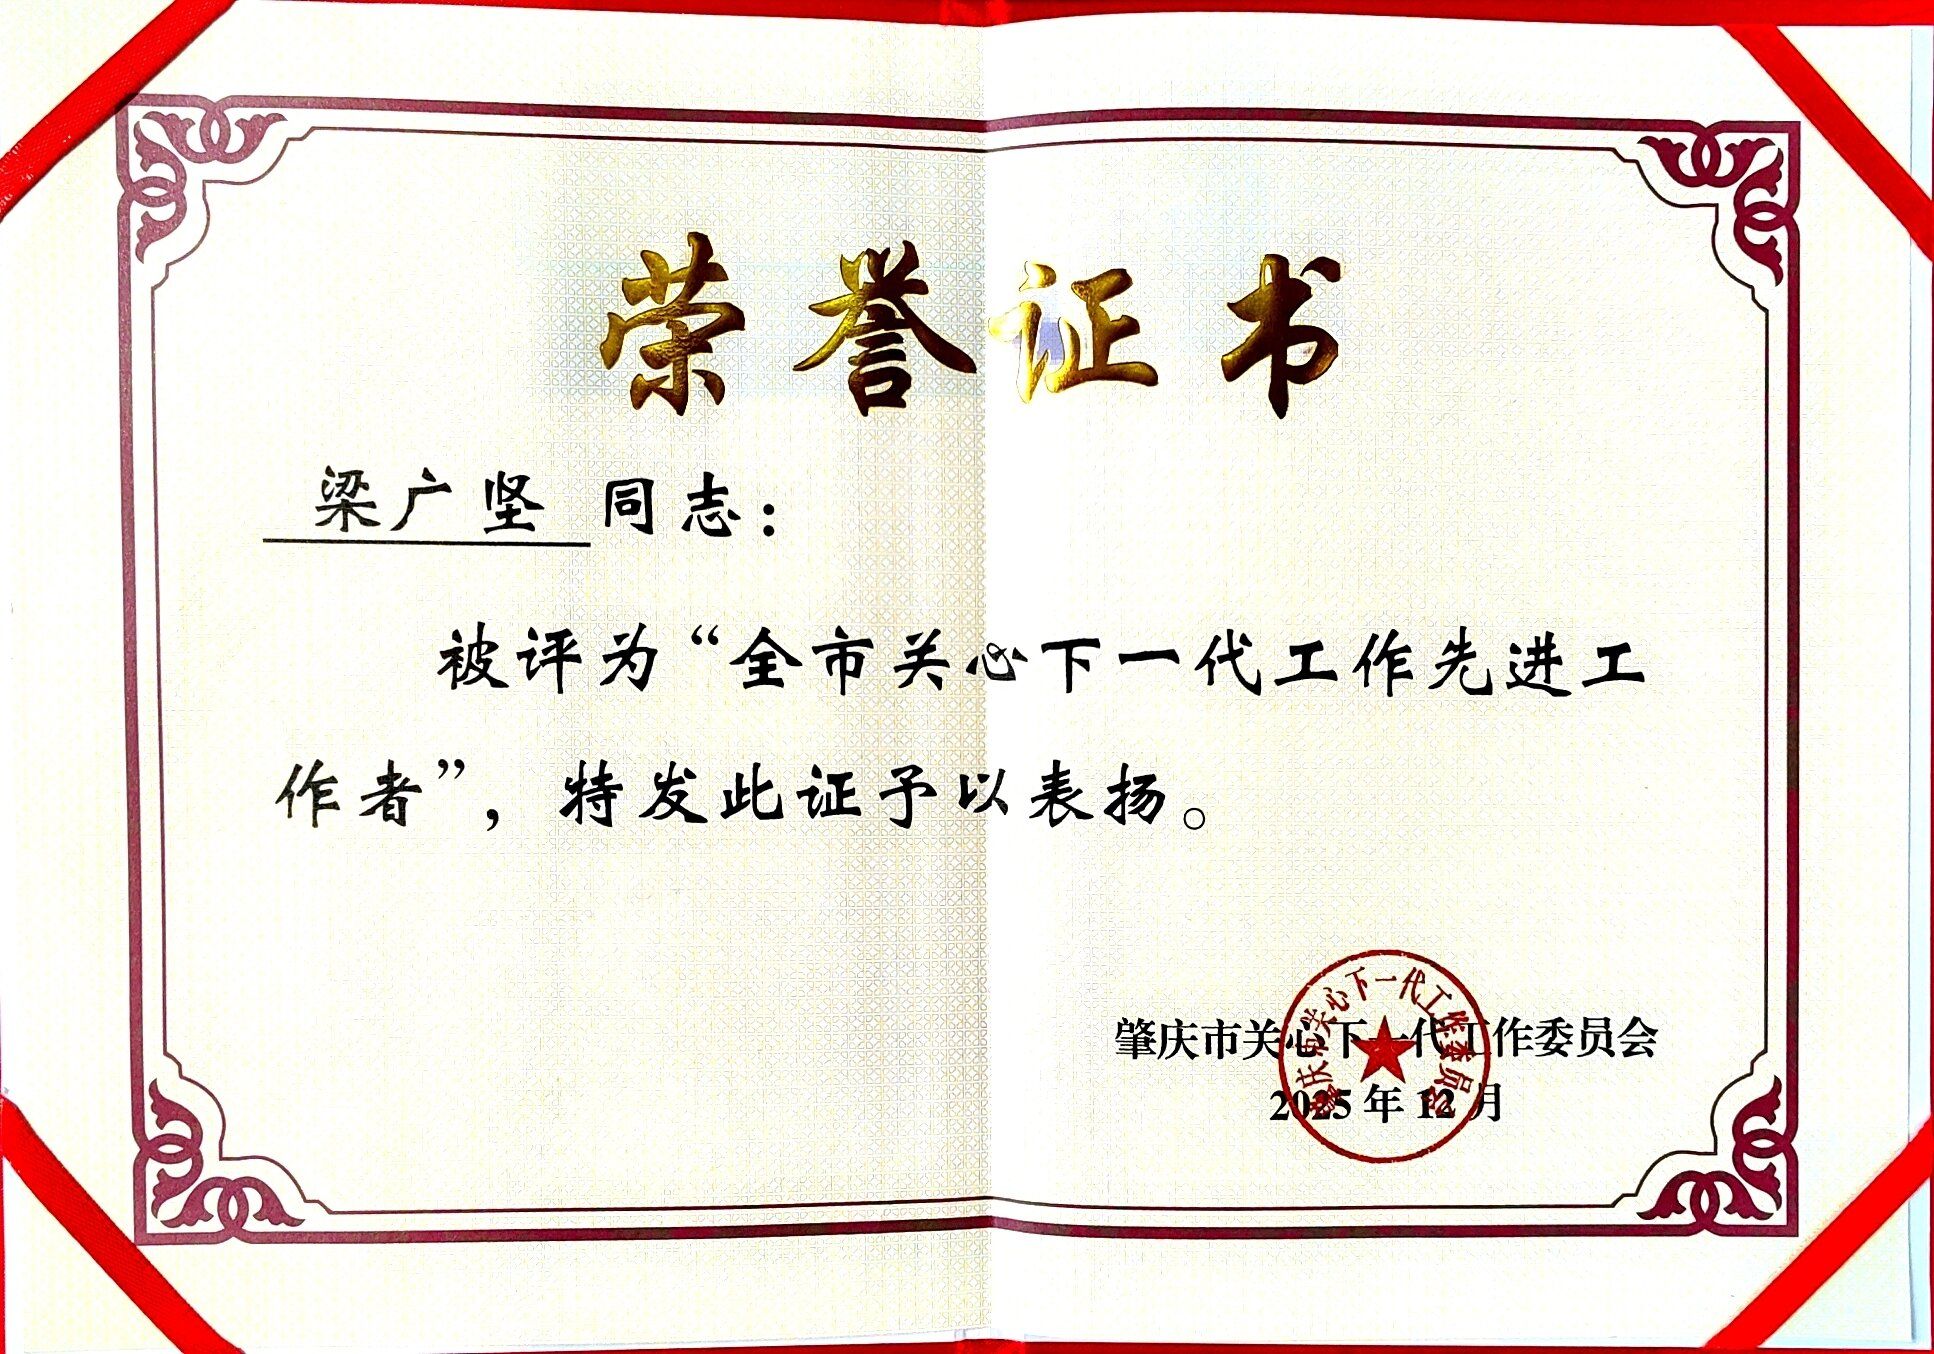 荣誉证书
梁广坚 同志：
被评为“全市关心下一代工作先进工
作者”，特发此证予以表扬。
肇庆市关心下一代工作委员会
2025年12月
肇庆市关心下一代工作委员会